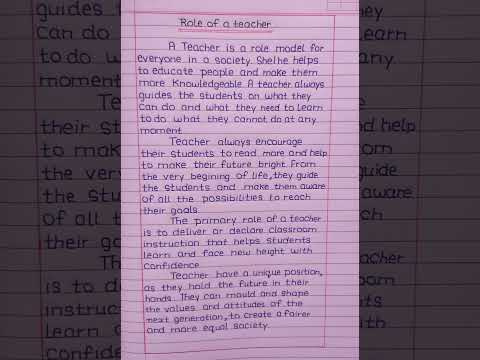 Role of a teacher
A Teacher is a role model for
everyone in a society. She/he helps
to educate people and make them
more Knowledgeable. A teacher always
guides the students on what they
Can do and what they need to learn
to do what they cannot do at any
moment.
Teacher always encourage
their students to read more and help
to make their future bright. From
the very begining of life, they guide
the students and make them aware
of all the possibilities to reach
their goals.
The primary role of a teacher
is to deliver or declare classroom
instruction that helps students
learn and face new height with
confidence.
Teacher have a unique position,
as they hold the future in their
hands. They can mould and shape
the values and attitudes of the
next generation, to create a fairer
and more equal society.